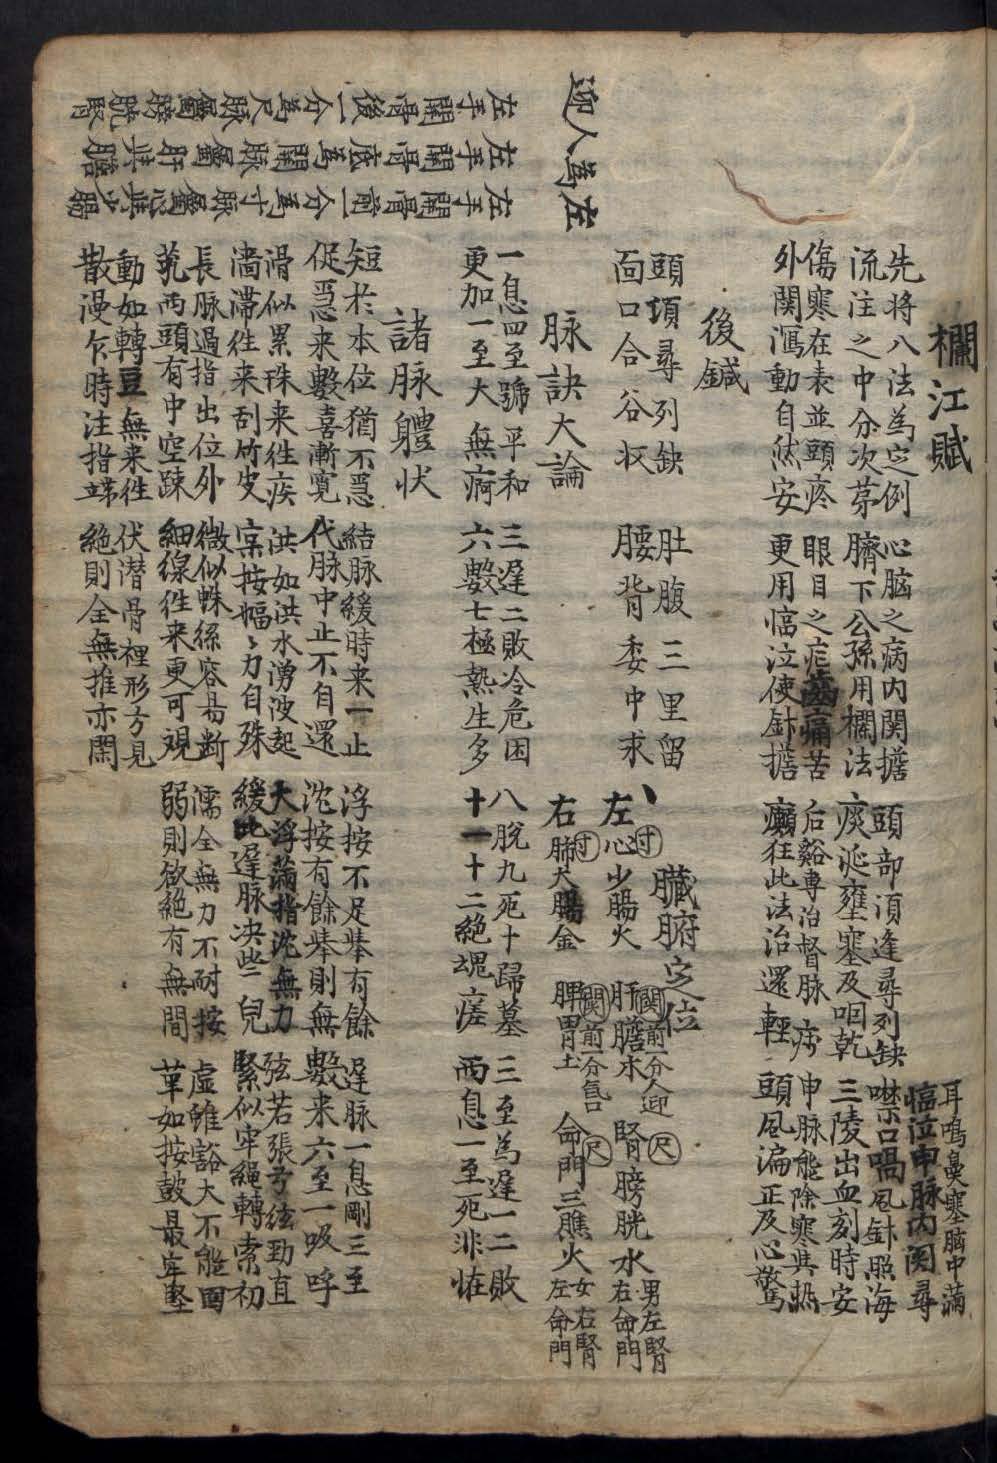 欄江賦
先将八法為定例
流注之中分次苐
心脑之病内関擔
臍下公孫用欄法
頭部湏逢尋列缺
痰涎壅塞及咽乾
噤口喎風針照海
三陵出血刻時安
傷寒在表並頭疼
外関瀉動自然安
眼目之症盖痛苦
更用临泣使針擔
后谿專治督脉病
癲狂此法治還輕
申脉能除寒與热
頭風偏正及心驚
耳鳴鼻塞脑中滿
临泣申脉内関尋
後鍼
頭項尋列缺
面口合谷收
肚腹三里留
腰背委中求
臓腑定位
左心少腸火
肝膽木
腎膀胱水
男左腎
右命門
寸
関前一分人迎
尺
右肺大腸金
脾胃土
命門三膲火
女右腎
左命門
寸
関前一分気口
尺
脉訣大論
一息四至號平和
更加一至大無痾
三遲二敗冷危困
六數七極熱生多
八脫九死十歸墓
十一十二絶塊瘥
三至為遲一二敗
两息一至死非恠
諸脉軆状
短於本位猶不及
促急来數喜漸寛
結脉緩時来一止
代脉中止不自還
浮按不足舉有餘
沈按有餘舉則無
遲脉一息剛三至
數来六至一吸呼
滑似累珠来徃疾
濇滞徃来刮竹皮
洪如洪水湧波起
実按幅〻力自殊
大浮滿指沈無力
緩比遲脉决些兒
弦若張弓絃勁直
緊似牢繩轉索初
長脉過指出位外
芤两頭有中空踈
微似蛛絲容易断
細線徃来更可覌
濡全無力不耐按
弱則欲絶有無間
虚雖豁大不能固
革如按皷最牢堅
動如轉豆無来徃
散漫乍時注指端
伏潜骨裡形方見
絶則全無推亦閑
迎人為左
左手関骨前一分為寸脉屬心與少腸
左手関骨底為関脉屬肝與膽
左手関骨後一分為尺脉屬膀胱腎